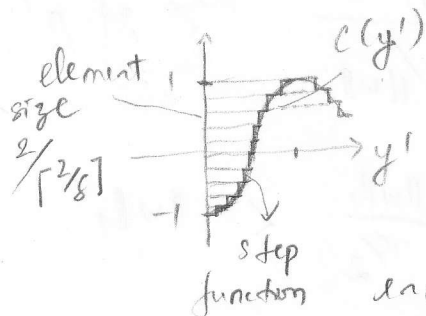 c(y')
element
size
2/⌈2/δ⌉
1
y'
-1
step
function